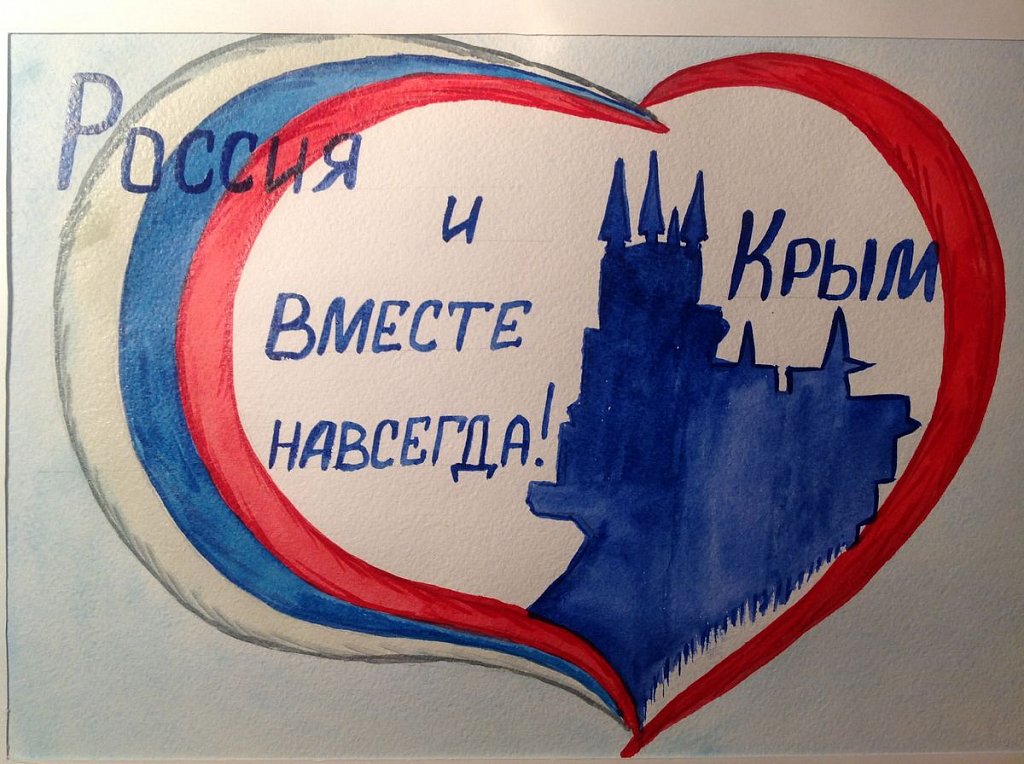 Россия
и Крым
вместе
навсегда!